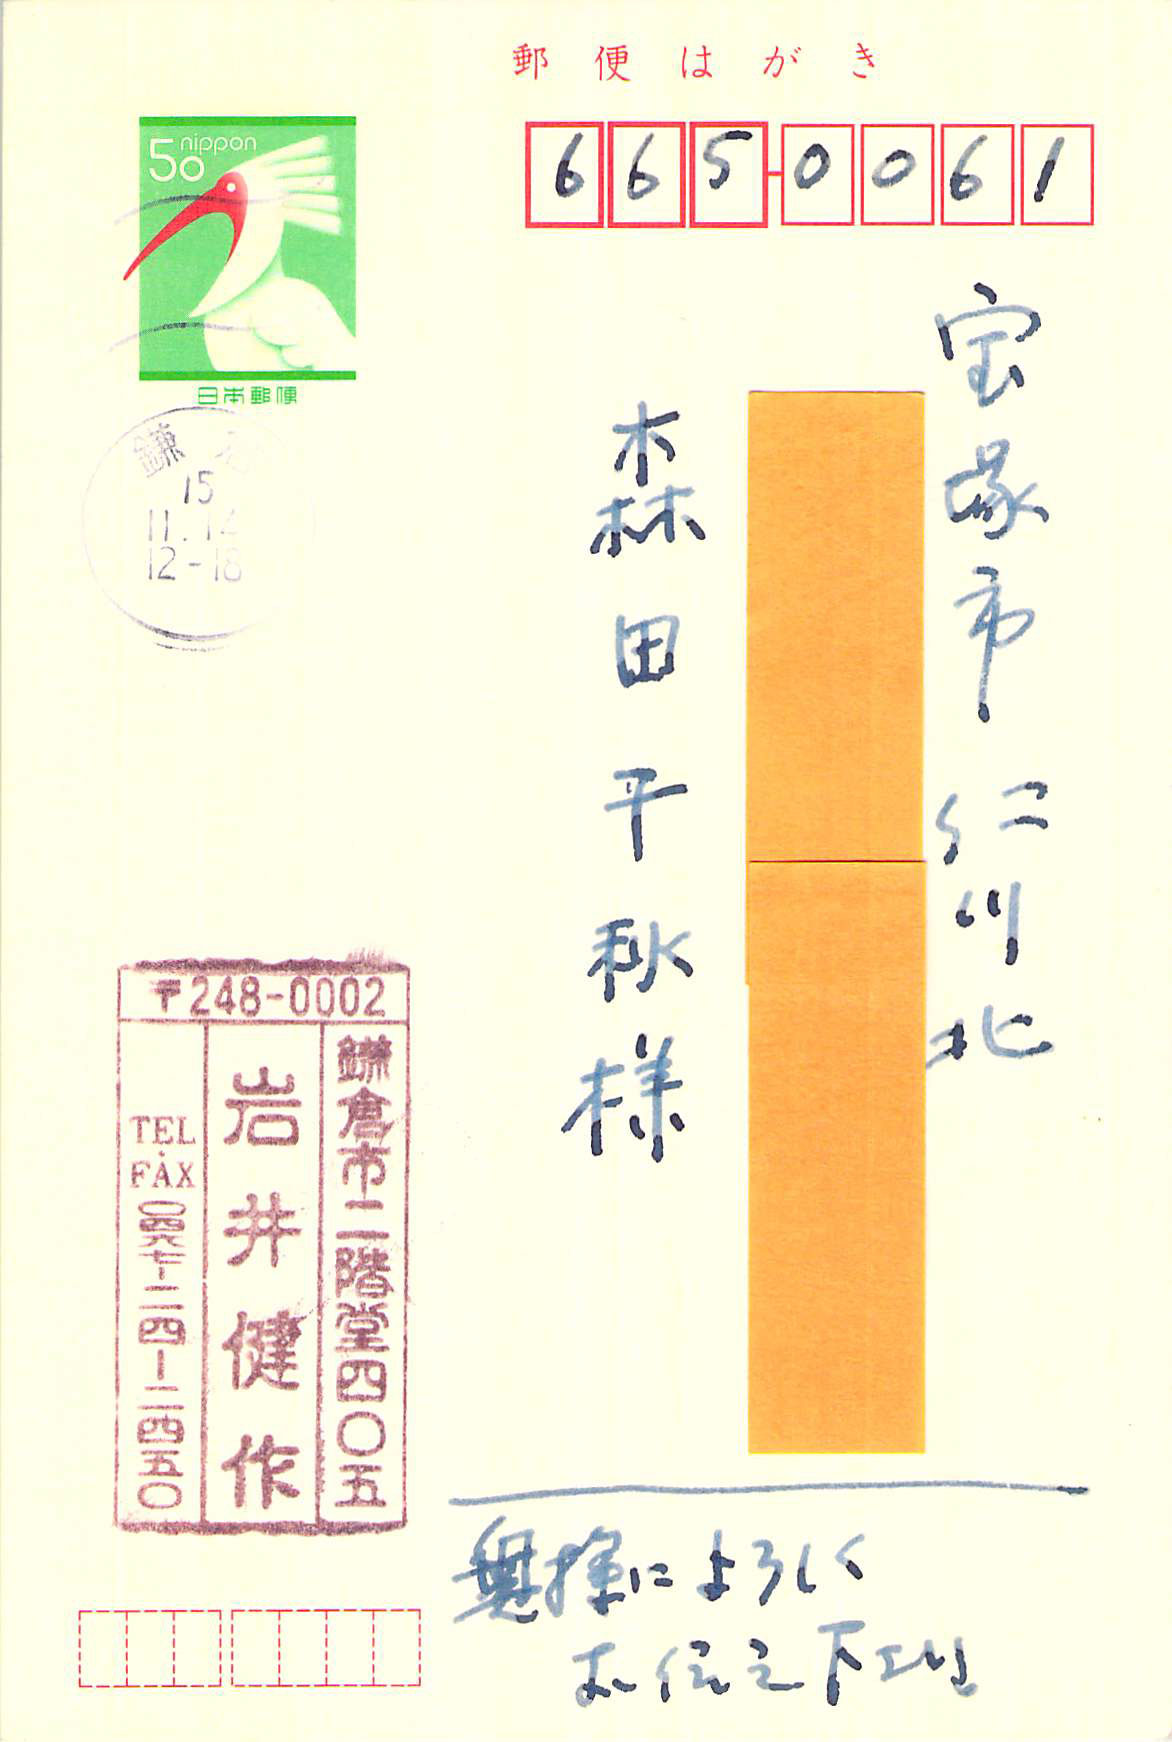 郵便はがき
50 nippon
日本郵便
665-0061
宝塚市仁川北
森田平秋様
鎌倉
15
11.14
12-18
〒248-0002
鎌倉市二階堂四〇五
岩井健作
TEL・FAX 〇四六七-二四-二四五〇
奥様によろしく
お伝え下さい